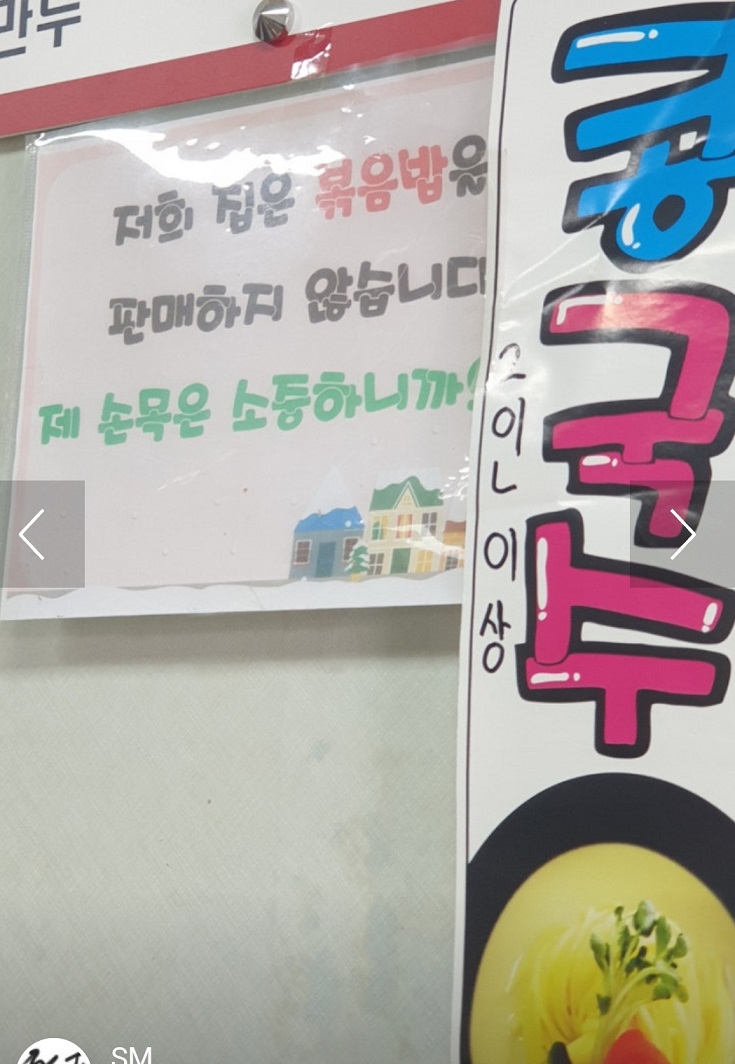 만두
저희 집은 볶음밥을
판매하지 않습니다
제 손목은 소중하니까
국수
2인 이상
SM